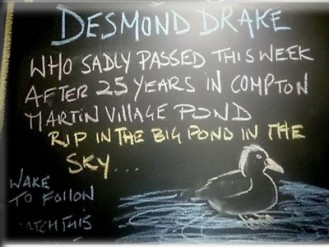 DESMOND DRAKE
WHO SADLY PASSED THIS WEEK
AFTER 25 YEARS IN COMPTON
MARTIN VILLAGE POND
RIP IN THE BIG POND IN THE
SKY...
WAKE
TO FOLLOW
WATCH THIS